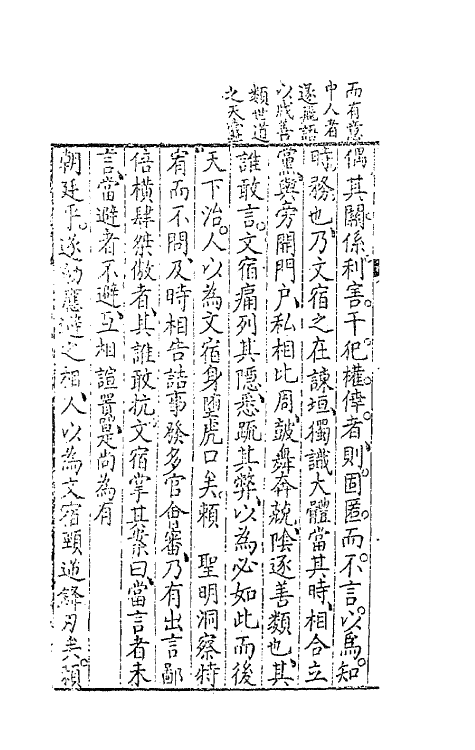 而有意
中人者
遂飛語
以戕善
類世道
之天寔
偶其關係利害干犯權倖者則固匿而不言以為知
時務也乃文宿之在諫垣獨識大體當其時相合立
黨與旁開門戶私相比周鼓舞奔競陰逐善類也其
誰敢言文宿痛列其隱悉疏其弊以為必如此而後
天下治人以為文宿身墮虎口矣頼 聖明洞察特
宥而不問及時相告詰事發多官會審乃有出言鄙
倍橫肆桀傲者其誰敢抗文宿掌其案曰當言者未
言當避者不避互相諠詈是尚為有
朝廷乎遂劾應避之相人以為文宿頸遒鋒刃矣頼